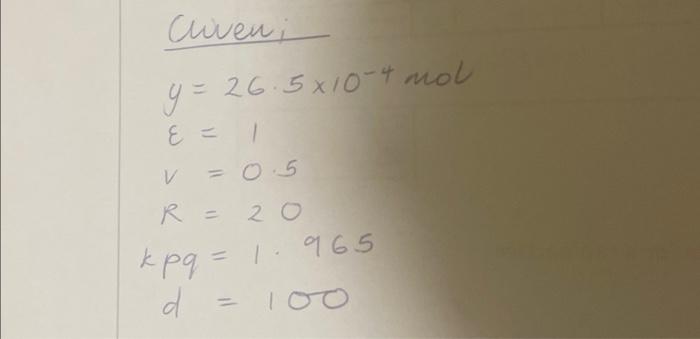 Given;
y = 26.5 x 10⁻⁴ mol
ε = 1
v = 0.5
R = 20
kpq = 1.965
d = 100